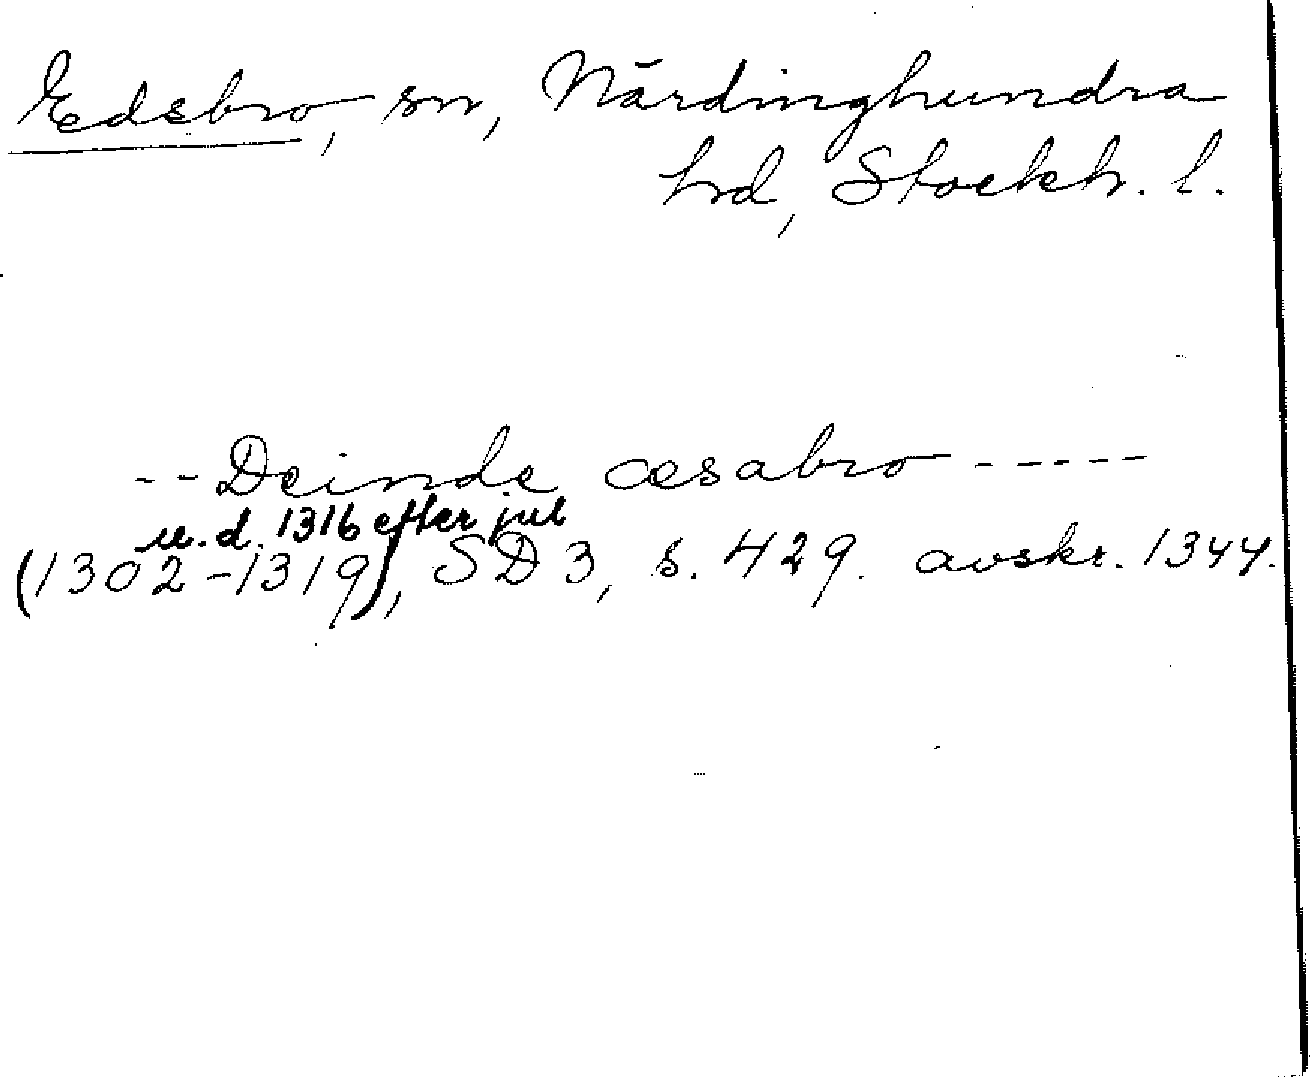 Edsbro, sn, Närdinghundra
hd, Stockh. l.
-- Deinde œsabro -----
u. d. 1316 efter jul
(1302-1319), SD 3, s. 429. avskr. 1344.